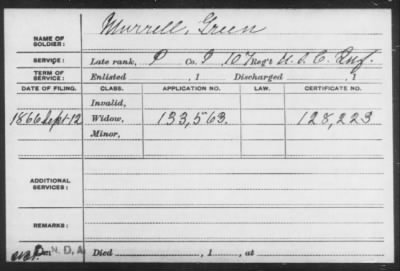 Murrell, Green
NAME OF SOLDIER:
SERVICE: Late rank, P Co. I 107 Reg't U.S.C. Inf.
TERM OF SERVICE: Enlisted , 1 Discharged , 1
DATE OF FILING. CLASS. APPLICATION NO. LAW. CERTIFICATE NO.
Invalid,
1866 Sept 12 Widow, 133,563. 128,223
Minor,
ADDITIONAL SERVICES:
REMARKS:
N.D.A. Died , 1 , at